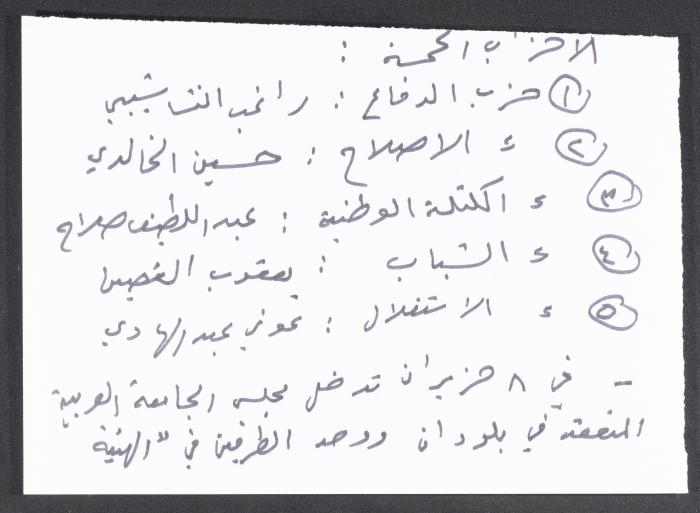 الاحزاب الخمسة :
١ حزب الدفاع : راغب النشاشيبي
٢ ء الاصلاح : حسين الخالدي
٣ ء الكتلة الوطنية : عبد اللطيف صلاح
٤ ء الشباب : يعقوب الغصين
٥ ء الاستقلال : عوني عبد الهادي
- في ٨ حزيران تدخل مجلس الجامعة العربية
المنعقد في بلودان ووحد الطرفين في "الهيئة